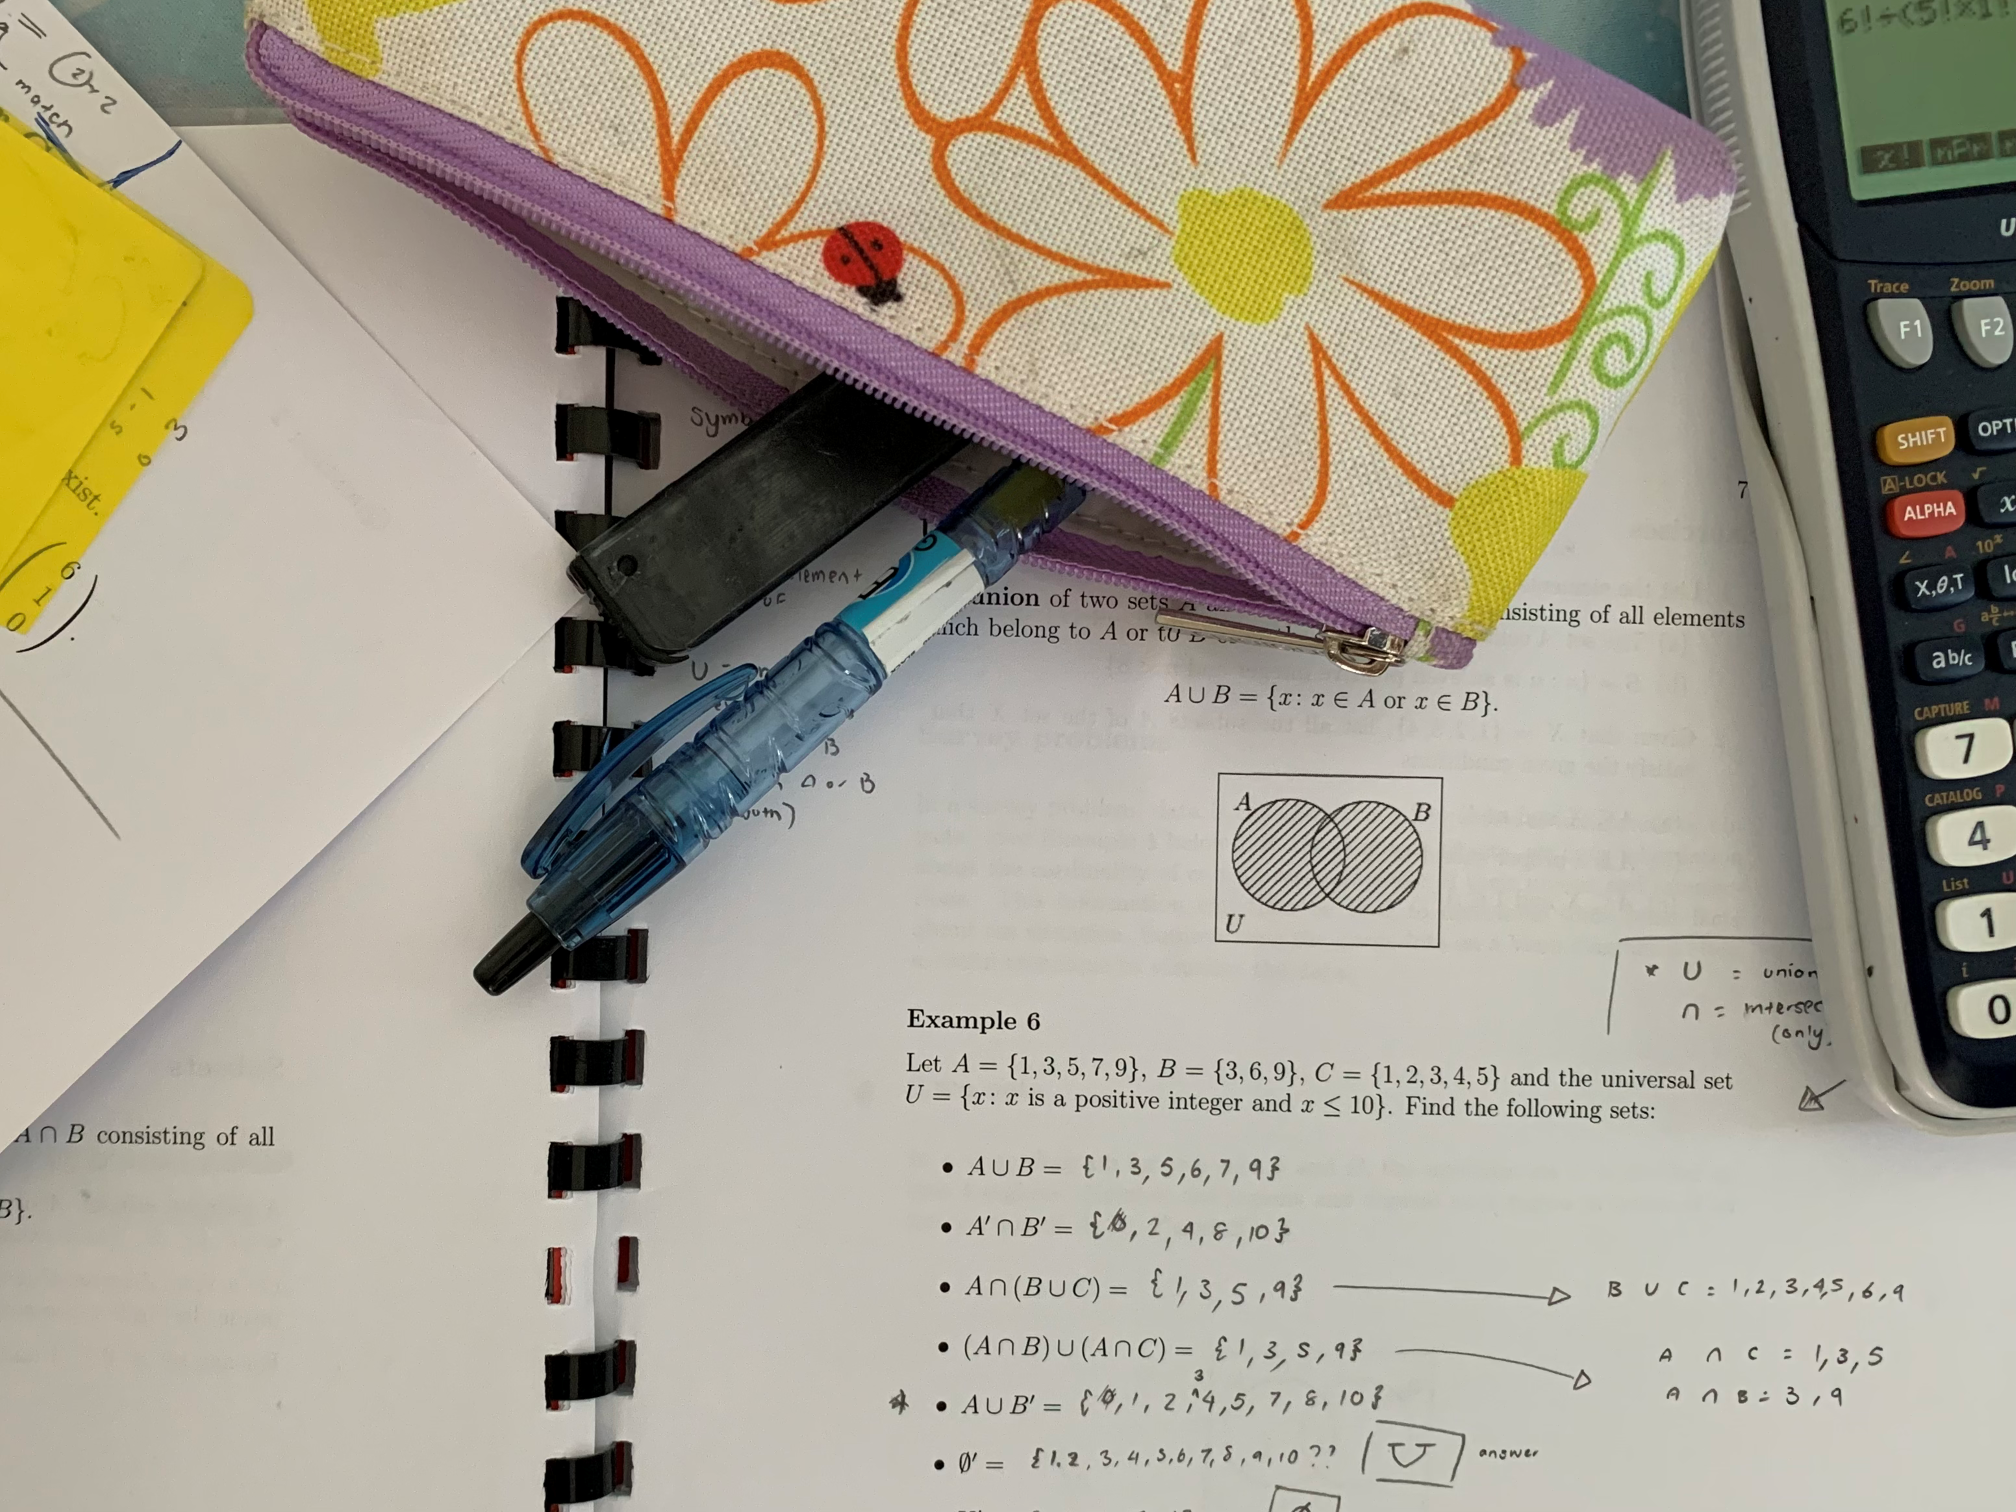 (2)+2
match
3
xist.
6
1
0
A ∩ B consisting of all
B}.
Symb
element
of
B
A or B
7
union of two sets A
nsisting of all elements
which belong to A or to B
A ∪ B = {x: x ∈ A or x ∈ B}.
A
B
U
* U = union
∩ = intersec
(only.
Example 6
Let A = {1, 3, 5, 7, 9}, B = {3, 6, 9}, C = {1, 2, 3, 4, 5} and the universal set
U = {x: x is a positive integer and x ≤ 10}. Find the following sets:
• A ∪ B = {1, 3, 5, 6, 7, 9}
• A′ ∩ B′ = {0, 2, 4, 8, 10}
• A ∩ (B ∪ C) = {1, 3, 5, 9}
B ∪ C = 1, 2, 3, 4, 5, 6, 9
• (A ∩ B) ∪ (A ∩ C) = {1, 3, 5, 9}
A ∩ C = 1, 3, 5
A ∩ B = 3, 9
* • A ∪ B′ = {0, 1, 2, 3, 4, 5, 7, 8, 10}
• ∅′ = {1, 2, 3, 4, 5, 6, 7, 8, 9, 10 ?? U answer
6!÷(5!×1!
x! nPr
Trace Zoom
F1 F2
SHIFT OPT
A-LOCK √
ALPHA x
∠ A 10ˣ
X,θ,T lo
G a b/c
ab/c
CAPTURE M
7
CATALOG P
4
List U
1
i
0